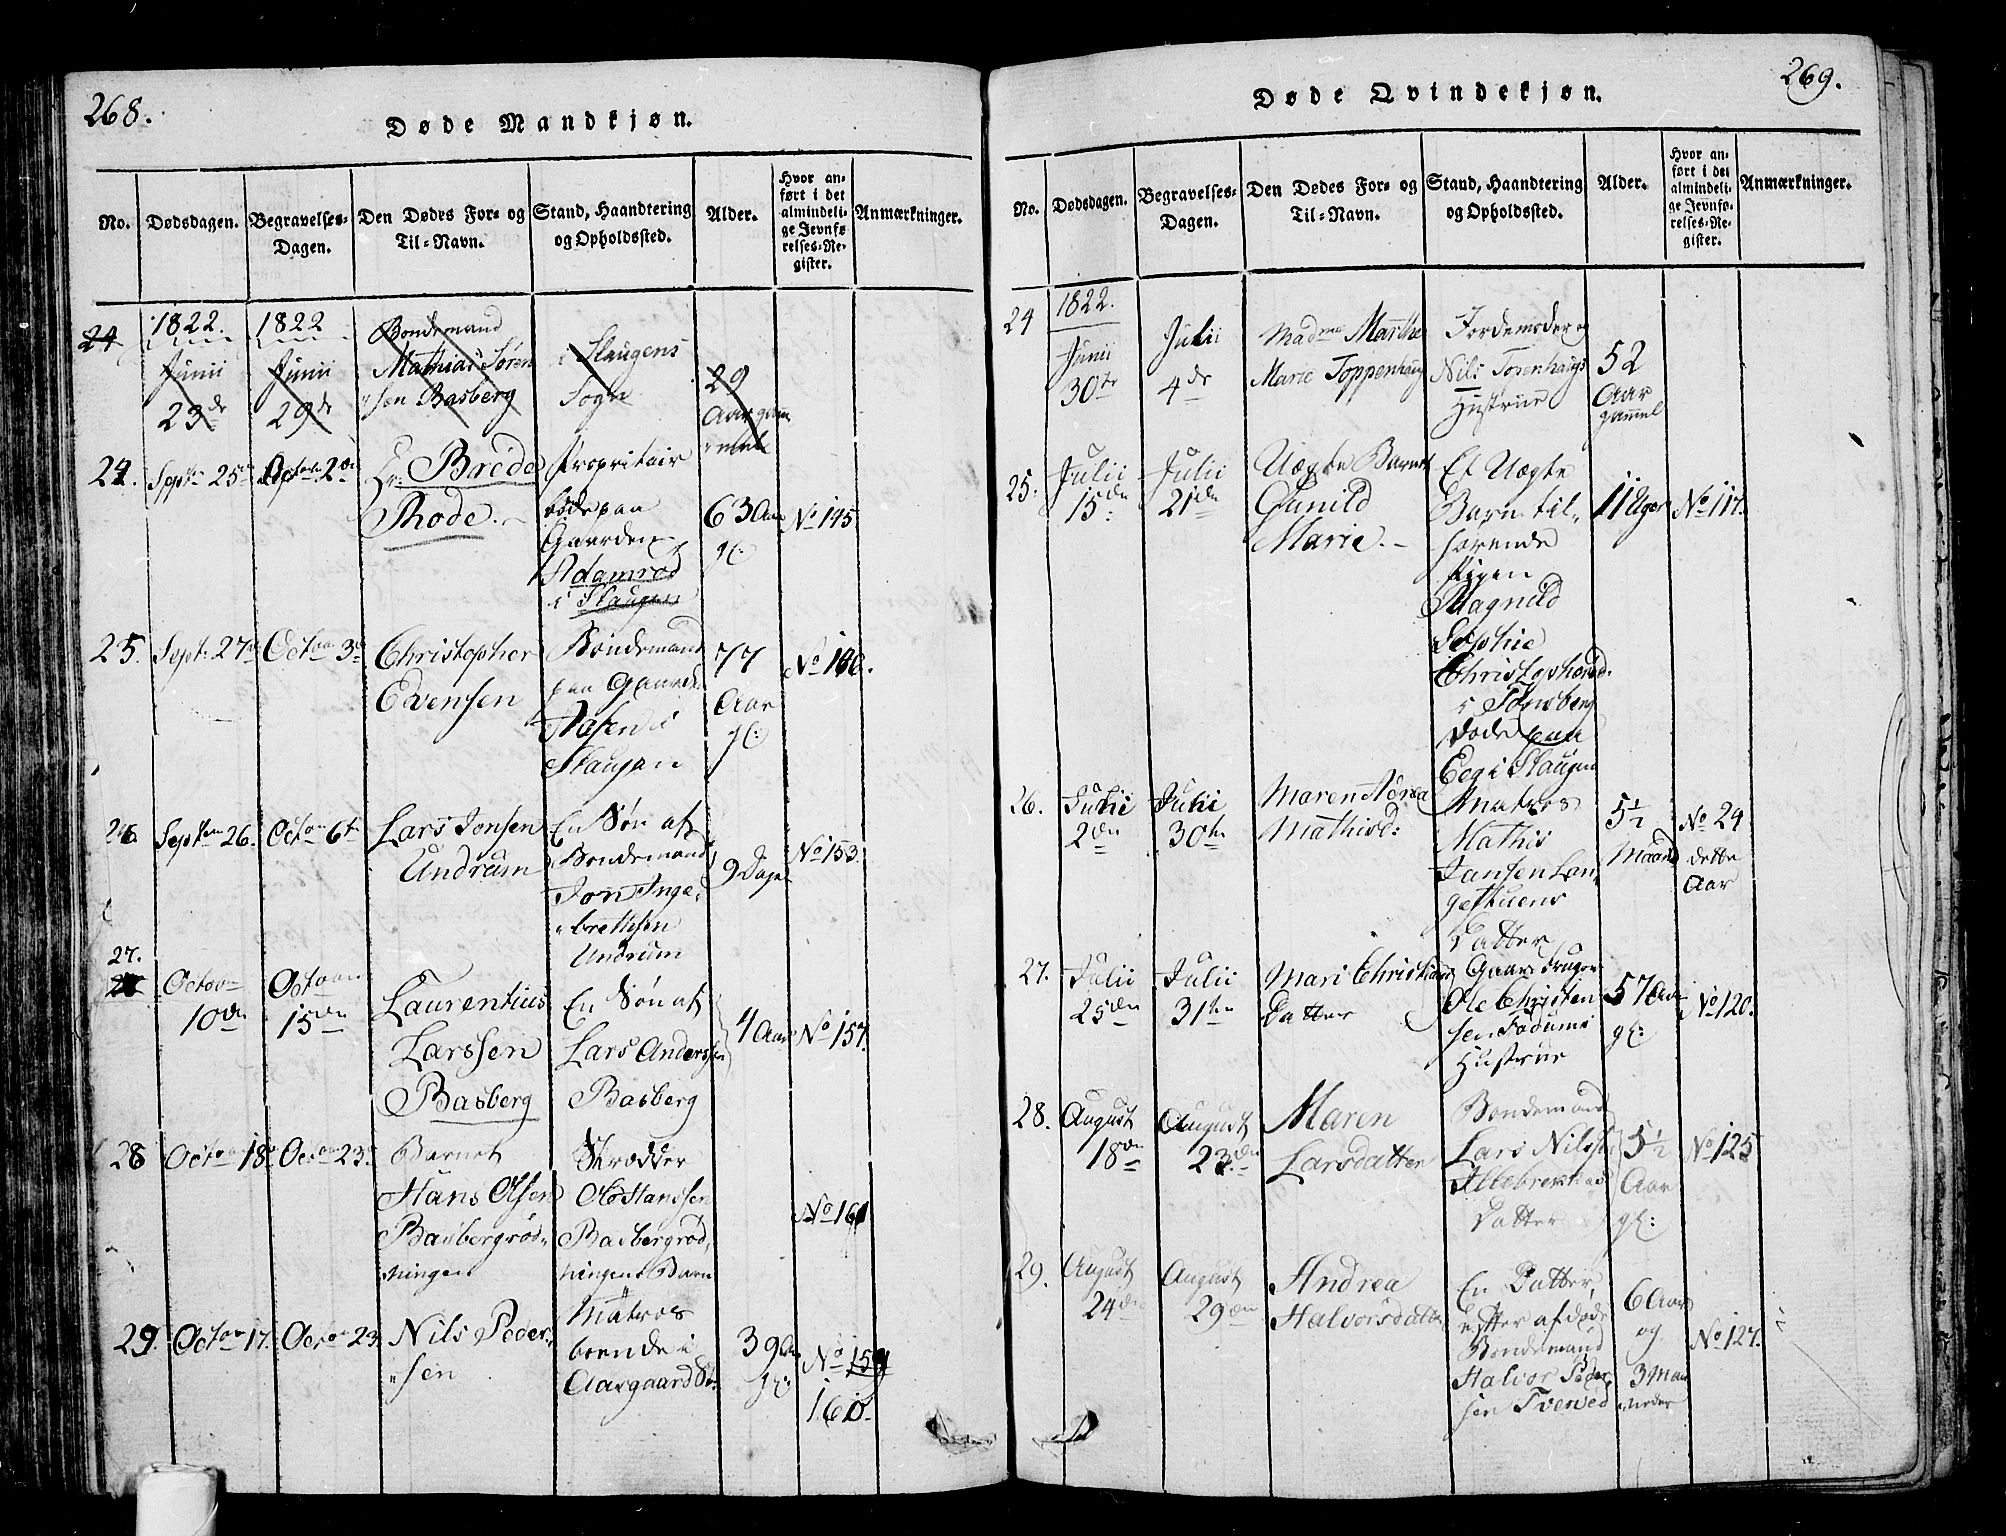 268.
Døde Mandkjøn.
No.
Dødsdagen.
Begravelses-
Dagen.
Den Dødes For- og
Til-Navn.
Stand, Haandtering
og Opholdssted.
Alder.
Hvor an-
ført i det
almindeli-
ge Jevnfø-
relses-Re-
gister.
Anmærkninger.
24
1822.
Junii
23de
1822
Junii
29de
Bondemand
Mathias Søren
sen Basberg
i Slaugens
Sogn
29
Aar gam
mel
24.
Septr 25de
Octr 2den
Hr. Brede
Rode.
Propritair
boede paa
Gaarden
Adamrød
i Slaugen
63 Aar
gl:
No 145
25.
Septr 27de
Octr 3de
Christopher
Evensen
Bondemand
paa Gaarden
Aasen i
Slaugen
77
Aar
gl:
No 146.
26.
Septem 26.
Octr 6te
Lars Jonsen
Undrum
En Søn af
Bondemand
Jon Inge-
brethsen
Undrum
9 Dage
No 153.
27.
Octor
10de
Octor
15den
Laurentius
Larssen
Basberg
En Søn af
Lars Anderssen
Basberg
4 Aar
No 157.
28
Octor 18de
Octor 23de
Barnet
Hans Olsen
Basbergrød-
ningen
Skrædder
Ole Hanssen
Basbergrød-
ningens Barn
No 161
29.
Octor 17.
Octor 23
Nils Peder-
sen
Matros
boende i
Aasgaard
39 Aar
gl:
No 159
160.
269.
Døde Qvindekjøn.
No.
Dødsdagen.
Begravelses-
Dagen.
Den Dødes For- og
Til-Navn.
Stand, Haandtering
og Opholdssted.
Alder.
Hvor an-
ført i det
almindeli-
ge Jevnfø-
relses-Re-
gister.
Anmærkninger.
24
1822.
Junii
30te
Julii
4de
Madme Marthe
Marie Toppenhaug
Jordemoder og
Nils Torenhaugs
Hustrue
52
Aar
gammel
25.
Julii
15den
Julii
21den
Uægte Barnet
Gunild
Marie.
Et Uægte
Barn til-
hørende
Pigen
Magnild
Sophie
Christophersd.
i Tønsberg
døde paa
Eeg i Slaugen
11 Uger
No 117.
26.
Julii
2den
Julii
30te
Maren Adrea
Mathisd:
Matros
Mathis
Jansen Lan-
gestuens
Datter
5½
Maaned
No 24
dette
Aar
27.
Julii
25den
Julii
31te
Mari Christians
Datter
Gaardbruger
Ole Christen
sen Fadums
Hustrue
57 Aar
gl:
No 120.
28.
August
18den
August
23den
Maren
Larsdatter
Bondemand
Lars Nilssen
Illebrekkes
Datter
5½
Aar
gl:
No 125
29.
August
24den
August
29den
Andrea
Halvorsdatter
En Datter
efter afdøde
Bondemand
Halvor Peder
sen Tverved
6 Aar
og
3 Maa
neder
No 127.